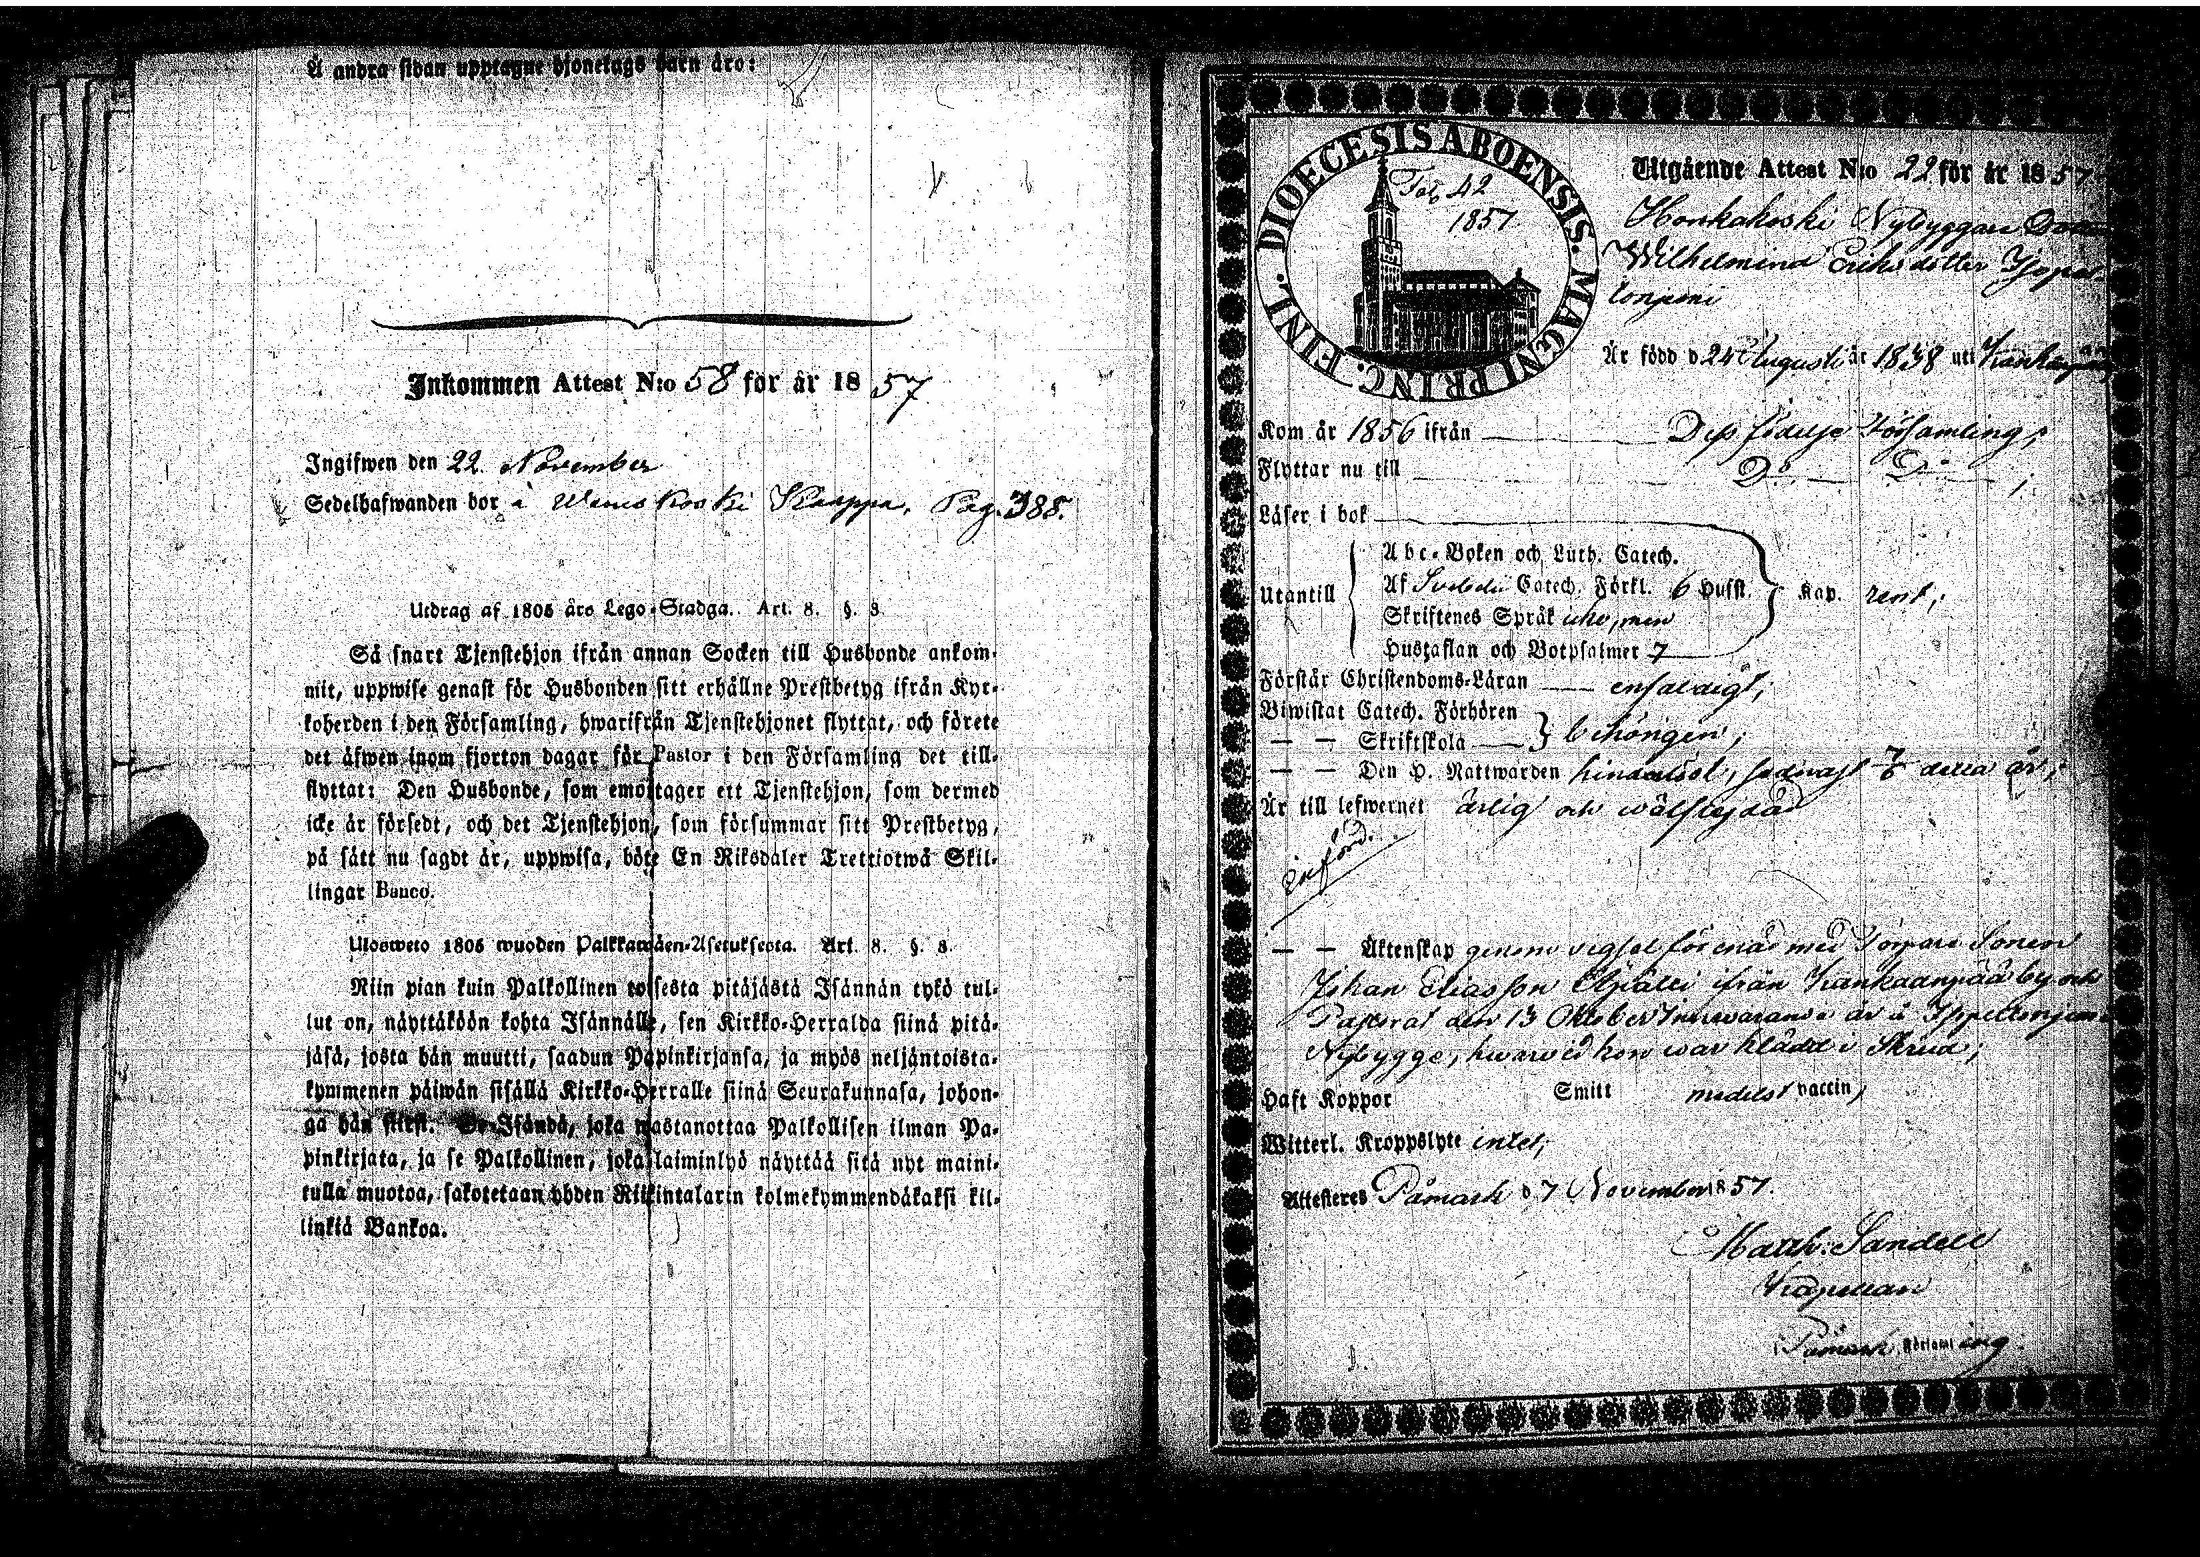 Å andra sidan upptagne hjonelags barn äro:
Inkommen Attest N:o 58 för år 1857
Ingifwen den 22. November
Sedelhafwanden bor i Pag. 388.
Utdrag af 1805 års Lego-Stadga. Art. 8. §. 3.
Så snart Tjenstehjon ifrån annan Socken till Husbonde ankom-
mit, uppwise genast för Husbonden sitt erhållne Prestbetyg ifrån Kyr-
koherden i den Församling, hwarifrån Tjenstehjonet flyttat, och förete
det äfwen inom fjorton dagar för Pastor i den Församling det till-
flyttat: Den Husbonde, som emottager ett Tjenstehjon, som dermed
icke är försedt, och det Tjenstehjon, som försummar sitt Prestbetyg,
på sätt nu sagdt är, uppwisa, böte En Riksdaler Trettiotwå Skil-
lingar Banco.
Ulosweto 1805 wuoden Palkkawäen-Asetuksesta. Art. 8. §. 3.
Niin pian kuin Palkollinen toisesta pitäjästä Isännän tykö tul-
lut on, näyttäköön kohta Isännälle, sen Kirkko-Herralda siinä pitä-
jäsä, josta hän muutti, saadun Papinkirjansa, ja myös neljäntoista-
kymmenen päiwän sisällä Kirkko-Herralle siinä Seurakunnasa, johon-
ga hän siirsi. Se Isändä, joka wastanottaa Palkollisen ilman Pa-
pinkirjata, ja se Palkollinen, joka laiminlyö näyttää sitä nyt maini-
tulla muotoa, sakotetaan yhden Riikintalarin kolmekymmendäkaksi kil-
linkiä Bankoa.
DIOECESIS ABOENSIS. MAGNI PRINC. FINL.
42
1857
Utgående Attest N:o 22 för år 1857
Honkakoski Nybyggare
Wilhelmina Eriksdotter
Är född d 24 Augusti år 1838 uti
Kom år 1856 ifrån Församling;
Flyttar nu till Do Do;
Läser i bok
Utantill
Abc-Boken och Luth. Catech.
Af Svebelii Catech. Förkl. 6 Hufst.
Skriftenes Språk icke, men
Hustaflan och Botpsalmer 7
Kap. rent;
Förstår Christendoms-Läran enfaldigt;
Biwistat Catech. Förhören
— — Skriftskola behörigen;
— — Den H. Nattwarden hinderlöst, sednast 7/6 detta år;
Är till lefwernet ärlig och wälfrejdad
införd.
— — Äktenskap genom vigsel förenad med Torpare Sonen
Johan Eliasson ifrån Kankaanpää by och
Pastorat den 13 Oktober innevarande år å
Nybygge, hwarwid hon war klädd i Skrud;
Haft Koppor Smitt medelst vaccin;
Witterl. Kroppslyte intet;
Attesteres Påmark d 7 November 1857.
Matth. Sandell
Kapellan
i Påmark Församling.